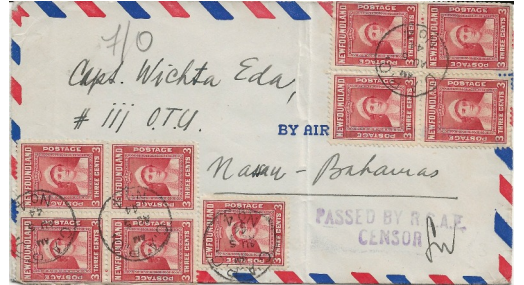 7/0
Capt. Wichta Eda,
# 111 O.T.U.
BY AIR
Nassau - Bahamas
PASSED BY R.C.A.F.
CENSOR
NEWFOUNDLAND
POSTAGE
THREE CENTS 3
NEWFOUNDLAND
POSTAGE
THREE CENTS 3
NEWFOUNDLAND
POSTAGE
THREE CENTS 3
NEWFOUNDLAND
POSTAGE
THREE CENTS 3
NEWFOUNDLAND
POSTAGE
THREE CENTS 3
NEWFOUNDLAND
POSTAGE
THREE CENTS 3
NEWFOUNDLAND
POSTAGE
THREE CENTS 3
NEWFOUNDLAND
POSTAGE
THREE CENTS 3
NEWFOUNDLAND
POSTAGE
THREE CENTS 3